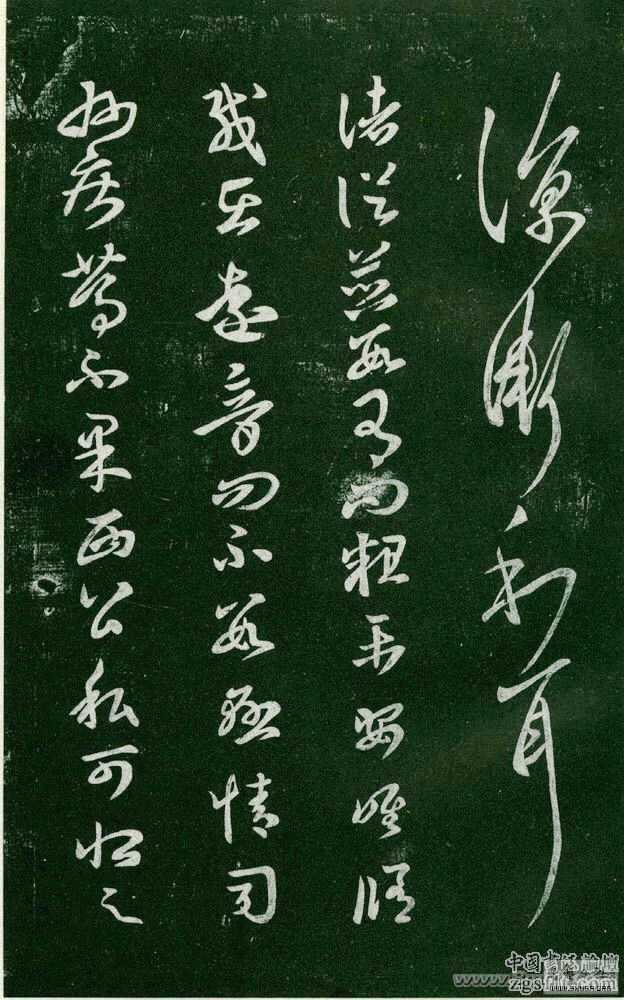 耳
諸從並數有問粗平安唯脩
載在遠音問不數懸情司
州疾篤不果西公私可恨足
中国书法论坛